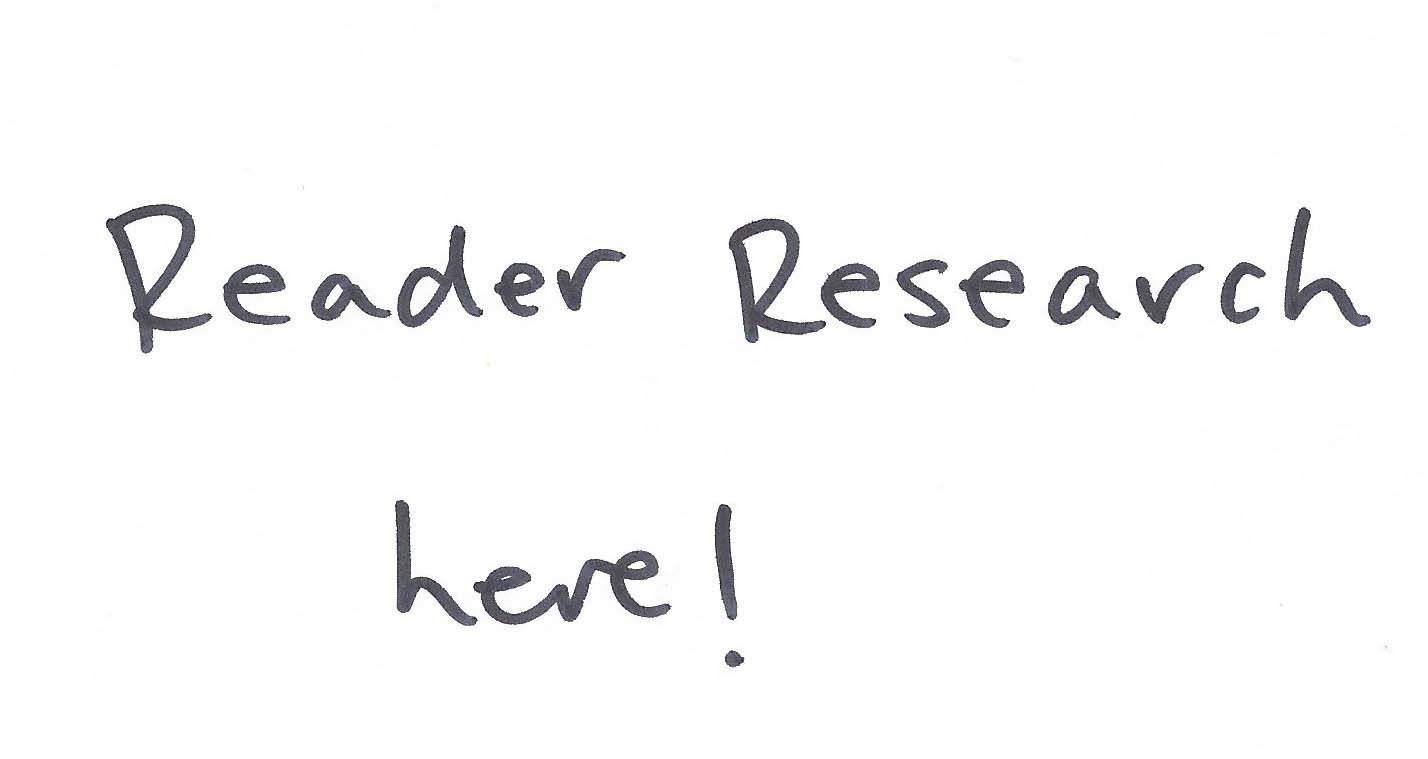 Reader Research
here!